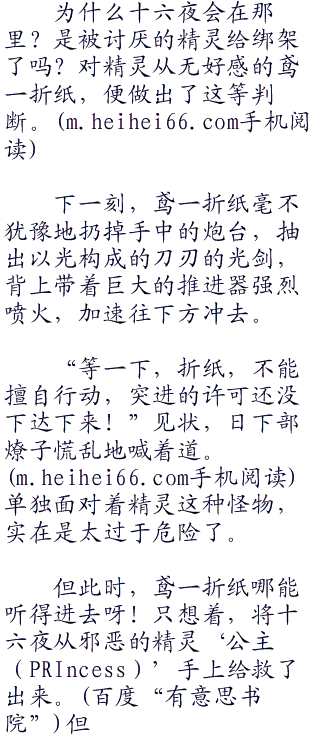 为什么十六夜会在那
里？是被讨厌的精灵给绑架
了吗？对精灵从无好感的鸢
一折纸，便做出了这等判
断。(m.heihei66.com手机阅
读)
下一刻，鸢一折纸毫不
犹豫地扔掉手中的炮台，抽
出以光构成的刀刃的光剑，
背上带着巨大的推进器强烈
喷火，加速往下方冲去。
“等一下，折纸，不能
擅自行动，突进的许可还没
下达下来！”见状，日下部
燎子慌乱地喊着道。
(m.heihei66.com手机阅读)
单独面对着精灵这种怪物，
实在是太过于危险了。
但此时，鸢一折纸哪能
听得进去呀！只想着，将十
六夜从邪恶的精灵‘公主
（PRIncess）’手上给救了
出来。(百度“有意思书
院”)但